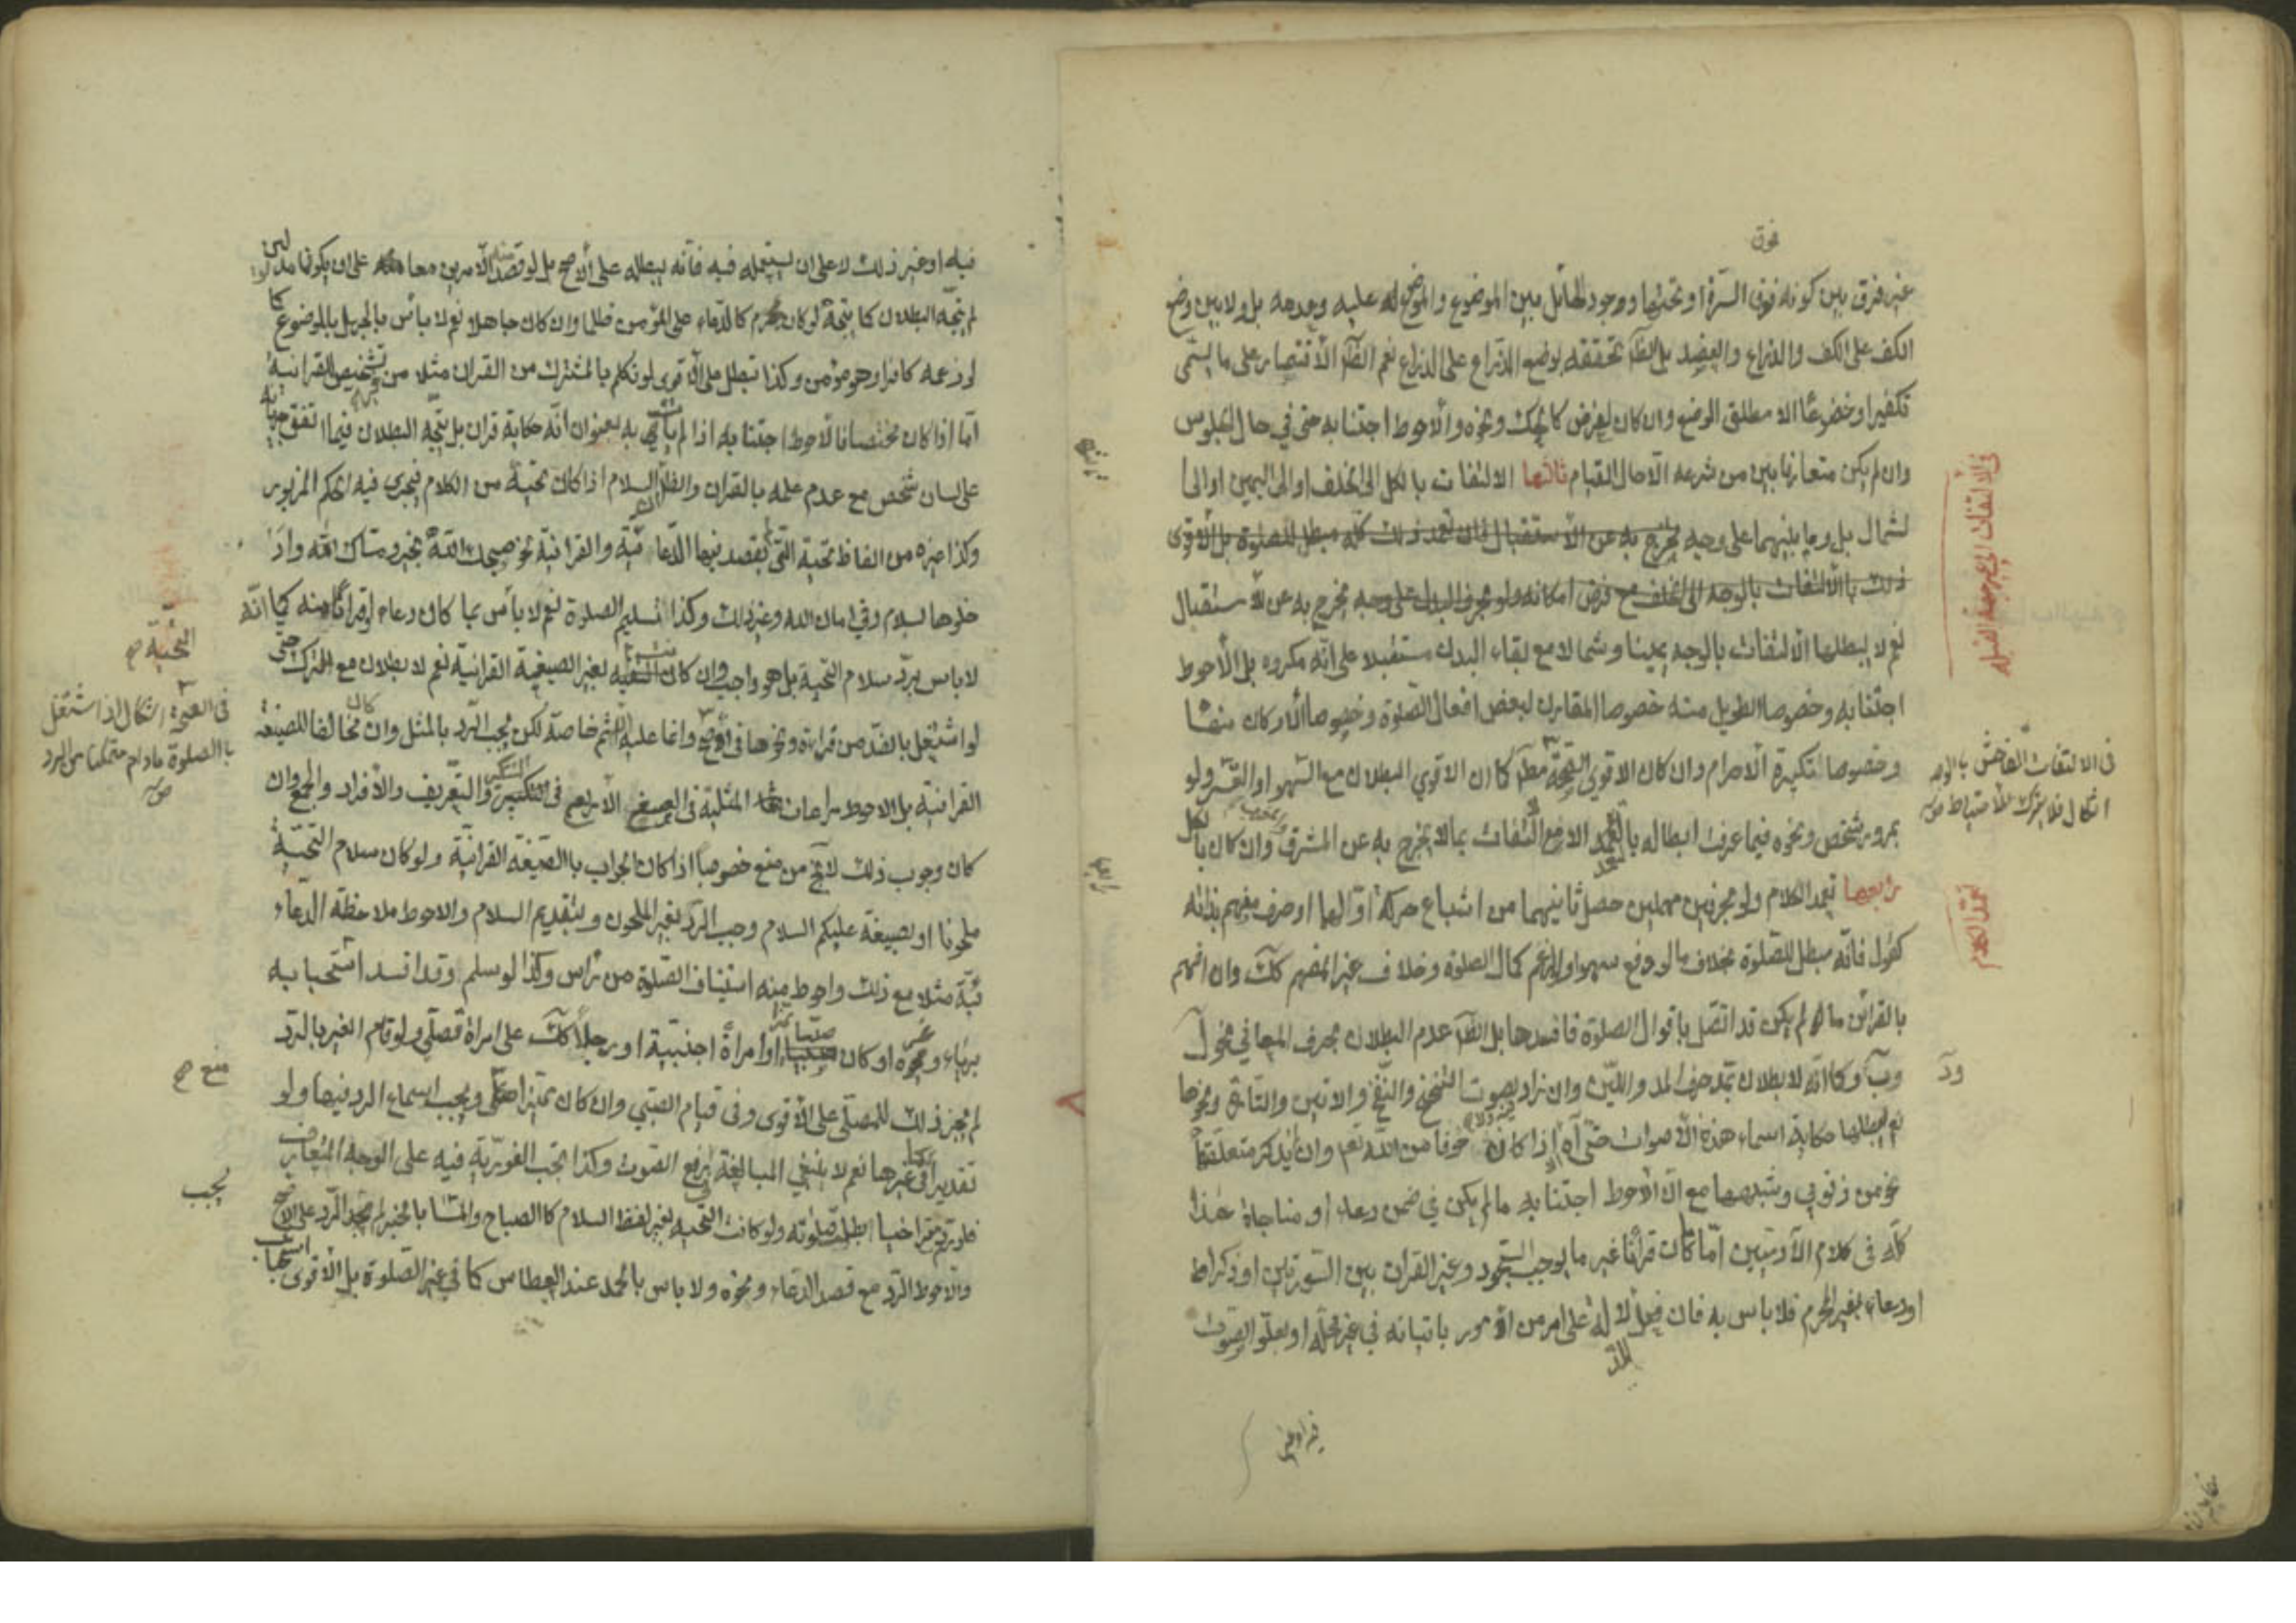 فوق
غير فرق بين كونه فوق السرة او تحتها ووجود الحائل بين الموضوع والموضوع عليه وعدمه بل ولا بين وضع
الكف على الكف والذراع والعضد بل الظا تحققه بوضع الذراع على الذراع نعم الظا الاقتصار على ما يسمى
تكفيرا وخضوعا الا مطلق الوضع وان كان لغرض كالحك ونحوه والاحوط اجتنابه حتى في حال الجلوس
وان لم يكن متعارفا بين من شرعه الا حال القيام ثالثها الالتفات بالكل الى الخلف او الى اليمين او الى ا
لشمال بل وما بينهما على وجه يخرج به عن الاستقبال فان تعمد ذلك كله مبطل للصلوة بل الاقوى
ذلك بالالتفات بالوجه الى الخلف مع فرض امكانه ولو بحرف البدن على وجه يخرج به عن الاستقبال
نعم لا يبطلها الالتفات بالوجه يمينا وشمالا مع بقاء البدن مستقبلا على انه مكروه بل الاحوط
اجتنابه وخصوصا الطويل منه خصوصا المقارن لبعض افعال الصلوة وخصوصا الاركان منها
وخصوصا تكبيرة الاحرام وان كان الاقوى الصحة مط كما ان الاقوى البطلان مع السهو او القسر ولو
بمرور شخص ونحوه فيما عرفت ابطاله بالتعمد الا مع التفات بما لا يخرج به عن المشرق وان كان بالكل
رابعها تعمد الكلام ولو بحرفين مهملين حصل ثانيهما من اشباع حركة اولهما او حرف مفهم بذاته
كقول فانه مبطل للصلوة بخلاف ما لو وقع سهوا او لزعم كمال الصلوة وخلاف غير المفهم كك وان افهم
بالقرائن ما لم يكن قد اتصل باقوال الصلوة فافسدها بل الظا عدم البطلان بحرف المعاني نحو ل
وب وكا انه لا بطلان بمد حرف المد واللين وان زاد بصوت التنحنح والنفخ والانين والتاوه ونحوها
نعم يبطلها حكاية اسماء هذه الاصوات حتى آه اذا كان خوفا من الله تعم وان يذكر متعلقها
نحو من ذنوبي وشبهها مع ان الاحوط اجتنابه ما لم يكن في ضمن دعاء او مناجاة هذا
كله في كلام الآدميين اما ما كان قرانا غير ما يوجب السجود وغير القران بين السورتين او ذكرا
او دعاء بغير المحرم فلا باس به فان فعل للدلالة على امر من الامور باتيانه في غير محله او بعلو الصوت
فيه او غير
في الالتفات الى غير جهة القبلة
في الالتفات الفاحش بالوجه
اشكال فلا يترك الاحتياط
تعمد الكلام
ود
فيه او غير ذلك لا على ان يستعمله فيه فانه يبطله على الاصح بل لو قصد الامرين معا على ان يكونا مدلولي
لم يتجه البطلان كما يتجه لو كان بمحرم كالدعاء على المؤمن ظلما وان كان جاهلا نعم لا باس بالجهل بالموضوع كما
لو زعمه كافرا وهو مؤمن وكذا تبطل على الاقوى لو تكلم بالمشترك من القران مثلا من تشخيص القرانية
اما اذا كان مختصا فالاحوط اجتنابه اذا لم يات به بعنوان انه حكاية قران بل يتجه البطلان فيما اتفق
على لسان شخص مع عدم علمه بالقران والظا السلام اذا كان تحية من الكلام فيجري فيه الحكم المزبور
وكذا غيره من الفاظ تحية التي يقصد بها الدعائية والقرانية نحو صبحك الله بخير ومساك الله واذ
خلوها بسلام وفي امان الله وغير ذلك وكذا تسليم الصلوة نعم لا باس بما كان دعاء او قرانا منه كما انه
لا باس برد سلام التحية بل هو واجب وان كان لغير الصيغة القرانية نعم لا بطلان مع الترك حتى
لو اشتغل بالضد من قراءة ونحوها في الاصح وانما عليه الاثم خاصة لكن يجب الرد بالمثل وان كان مخالفا للصيغة
القرانية بل الاحوط مراعات المثلية في الصيغ الاربع في التنكير والتعريف والافراد والجمع وان
كان وجوب ذلك لا يخ من منع خصوصا اذا كان الجواب بالصيغة القرانية ولو كان سلام التحية
ملحونا او بصيغة عليكم السلام وجب الرد بغير الملحون وبتقديم السلام والاحوط ملاحظة الدعا
ئية مثلا مع ذلك واحوط منه استيناف الصلوة من راس وكذا لو سلم وقد افسد استحبابه
برياء ونحوه او كان صبيا او امراة اجنبية او رجلا كك على امراة تصلي ولو قام الغير بالرد
لم يجز ذلك للمصلي على الاقوى وفي قيام الصبي وان كان مميزا ويجب اسماع الرد فيها ولو
تقديرا كغيرها نعم لا ينبغي المبالغة في رفع الصوت وكذا يجب الفورية فيه على الوجه المتعارف
فلو تراخيا ابطلت صلوته ولو كانت التحية بغير لفظ السلام كالصباح والمسا بالخير لم يجب الرد على الاصح
والاحوط الرد مع قصد الدعاء ونحوه ولا باس بالحمد عند العطاس كما في غير الصلوة بل الاقوى استحبابها
التحية
في الصحة اشكال اذا اشتغل
بالصلوة مادام متمكنا من الرد
منع
يجب